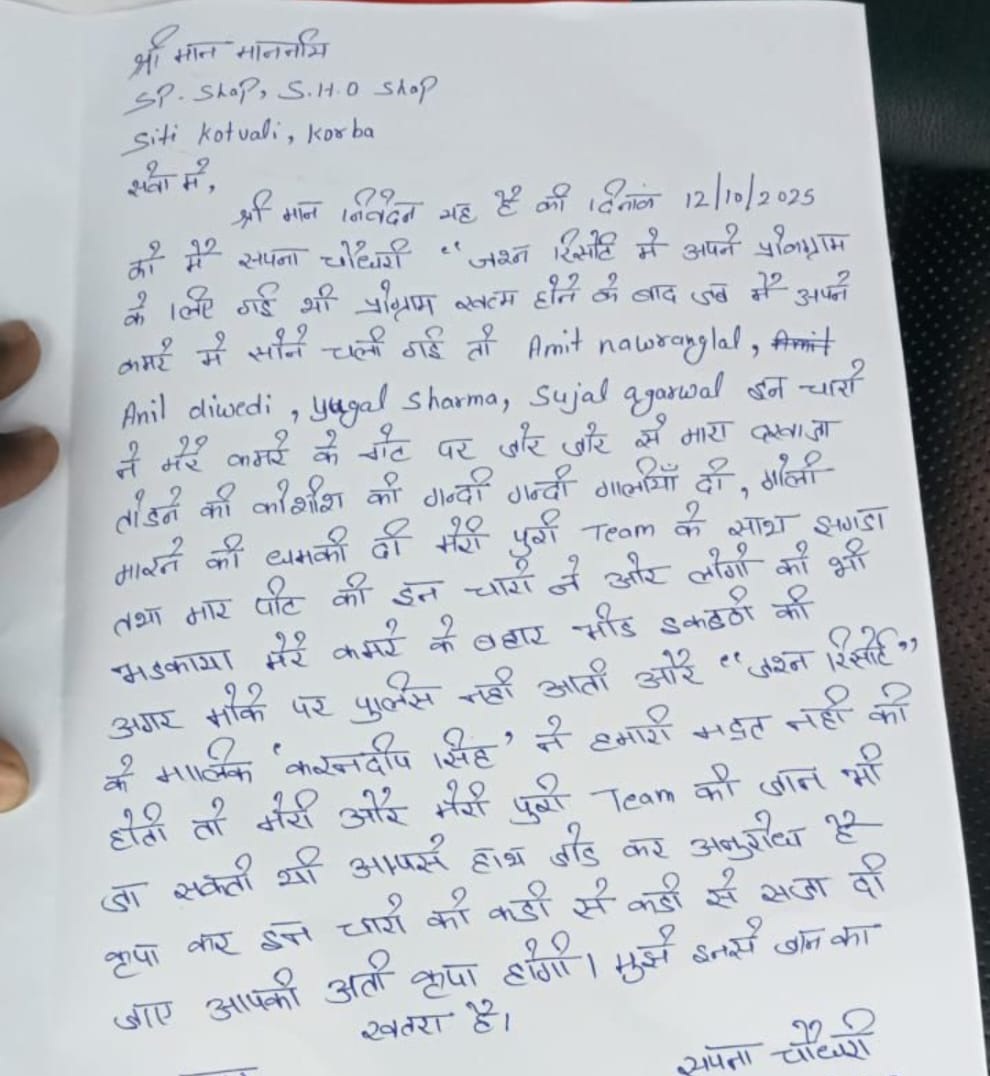 श्री मान माननीय
SP. Shap, S.H.O Shap
Siti Kotvali, Korba
सेवा में,
श्री मान निवेदन यह है की दिनांक 12/10/2025
को मैं सपना चौधरी "जश्न रिसोर्ट में अपने प्रोग्राम
के लिए गई थी प्रोग्राम खत्म होने के बाद जब मैं अपने
कमरे में सोने चली गई तो Amit nawranglal, Amit
Anil diwedi, yugal sharma, Sujal agarwal इन चारों
ने मेरे कमरे के गेट पर जोर जोर से मारा दरवाजा
तोडने की कोशीश की गन्दी गन्दी गालीयाँ दी, गोली
मारने की धमकी दी मेरी पुरी Team के साथ झगडा
तथा मार पीट की इन चारों ने और लोगो को भी
भडकाया मेरे कमरे के बहार भीड इकहठी की
अगर मौके पर पुलिस नहीं आती और "जश्न रिसोर्ट"
के मालिक 'करनदीप सिंह' ने हमारी मद्दत नहीं की
होती तो मेरी और मेरी पुरी Team की जान भी
जा सकती थी आपसे हाथ जोड कर अनुरोध है
कृपा कर इन चारों को कडी से कडी से सजा दी
जाए आपकी अती कृपा होगी। मुझे इनसे जान का
खतरा है।
सपना चौधरी